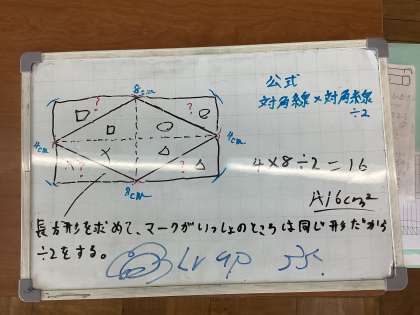 8cm
公式
対角線×対角線
÷2
?
?
4cm
4cm
?
?
8cm
4×8÷2=16
A16cm²
長方形を求めて、マークがいっしょのところは同じ形だから
÷2をする。